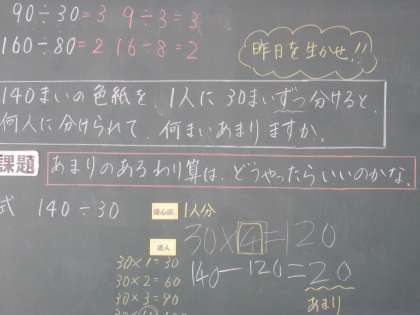 90÷30=3 9÷3=3
160÷80=2 16÷8=2
昨日を生かせ!!
140まいの色紙を、1人に30まいずつ分けると、
何人に分けられて、何まいあまりますか。
課題
あまりのあるわり算は、どうやったらいいのかな。
式 140÷30
1人分
30×4=120
達人
140-120=20
30×1=30
30×2=60
30×3=90
あまり